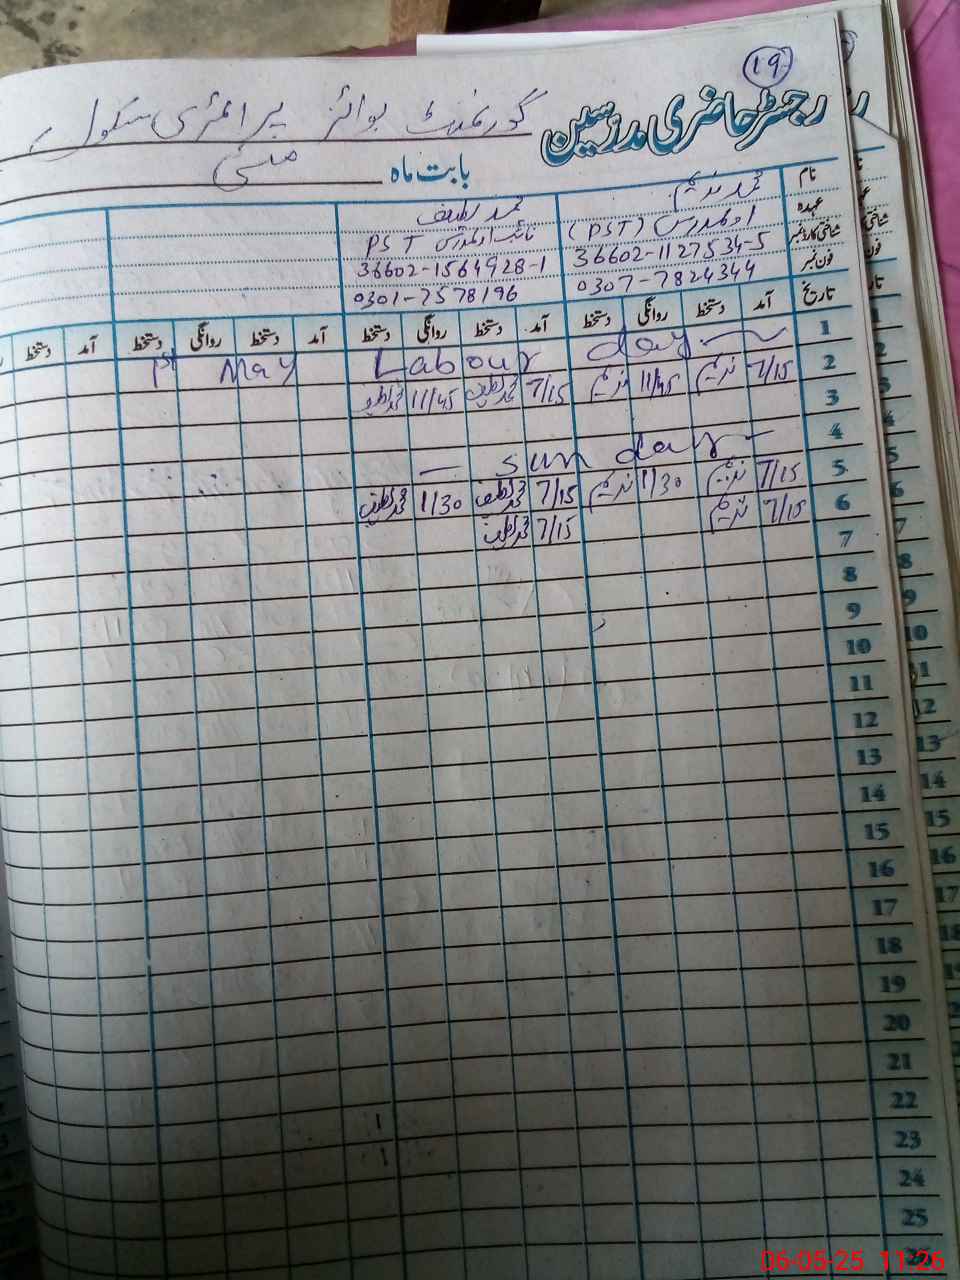 ۱۹
رجسٹر حاضری مدرسین گورنمنٹ بوائز پرائمری سکول
بابت ماہ مئی
نام محمد ندیم محمد لطیف
عہدہ (PST) نائب PST
شناختی کارڈ نمبر 36602-1127534-5 36602-1564928-1
فون نمبر 0307-7824344 0301-7578196
تاریخ آمد دستخط روانگی دستخط آمد دستخط روانگی دستخط آمد دستخط روانگی دستخط آمد دستخط
1 1st May Labour day
2 7/15 ندیم 11/45 ندیم 7/15 محمد لطیف 11/45 محمد لطیف
3
4 - Sunday -
5 7/15 ندیم 1/30 ندیم 7/15 محمد لطیف 1/30 محمد لطیف
6 7/15 ندیم 7/15 محمد لطیف
7
8
9
10
11
12
13
14
15
16
17
18
19
20
21
22
23
24
25
26
06-05-25 11:26